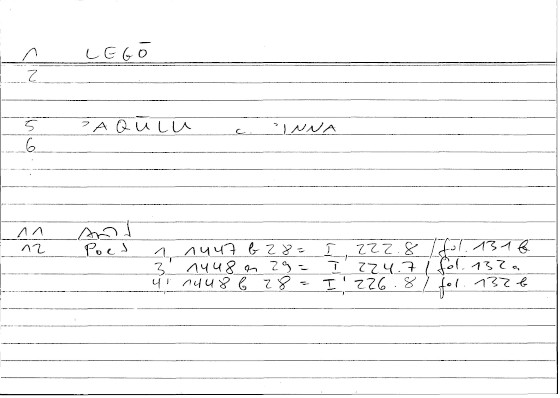 1 LEGŌ
2
5 ʾAQŪLU c ʾINNA
6
11 Arist
12 Poet 1, 1447 b 28 = I, 222.8 / fol. 131 b
3, 1448 a 29 = I, 224.7 / fol. 132 a
4, 1448 b 28 = I, 226.8 / fol. 132 b